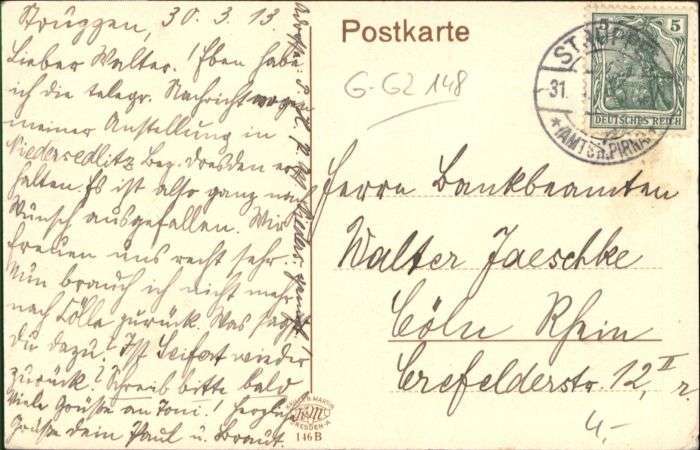 Struppen, 30. 3. 13.
Lieber Walter! Eben habe
ich die telegr. Nachricht wegen
meiner Anstellung in
Niedersedlitz Bez. Dresden er
halten. Es ist also ganz nach
Wunsch ausgefallen. Wir
freuen uns recht sehr.
Nun brauch ich nicht mehr
nach Cölln zurück. Was sagst
du dazu? Ist Seifert wieder
zurück? Schreib bitte bald
Viele Grüße an Toni! Herzliche
Grüße dein Paul u. Braut.
Postkarte
G-GZ 148
5
DEUTSCHES REICH
31.
*(AMTSH. PIRNA)*
Herrn Bankbeamten
Walter Jaeschke
Cöln Rhein
Crefelderstr 12, II r
4,-
K&M
DRESDEN-A
146 B